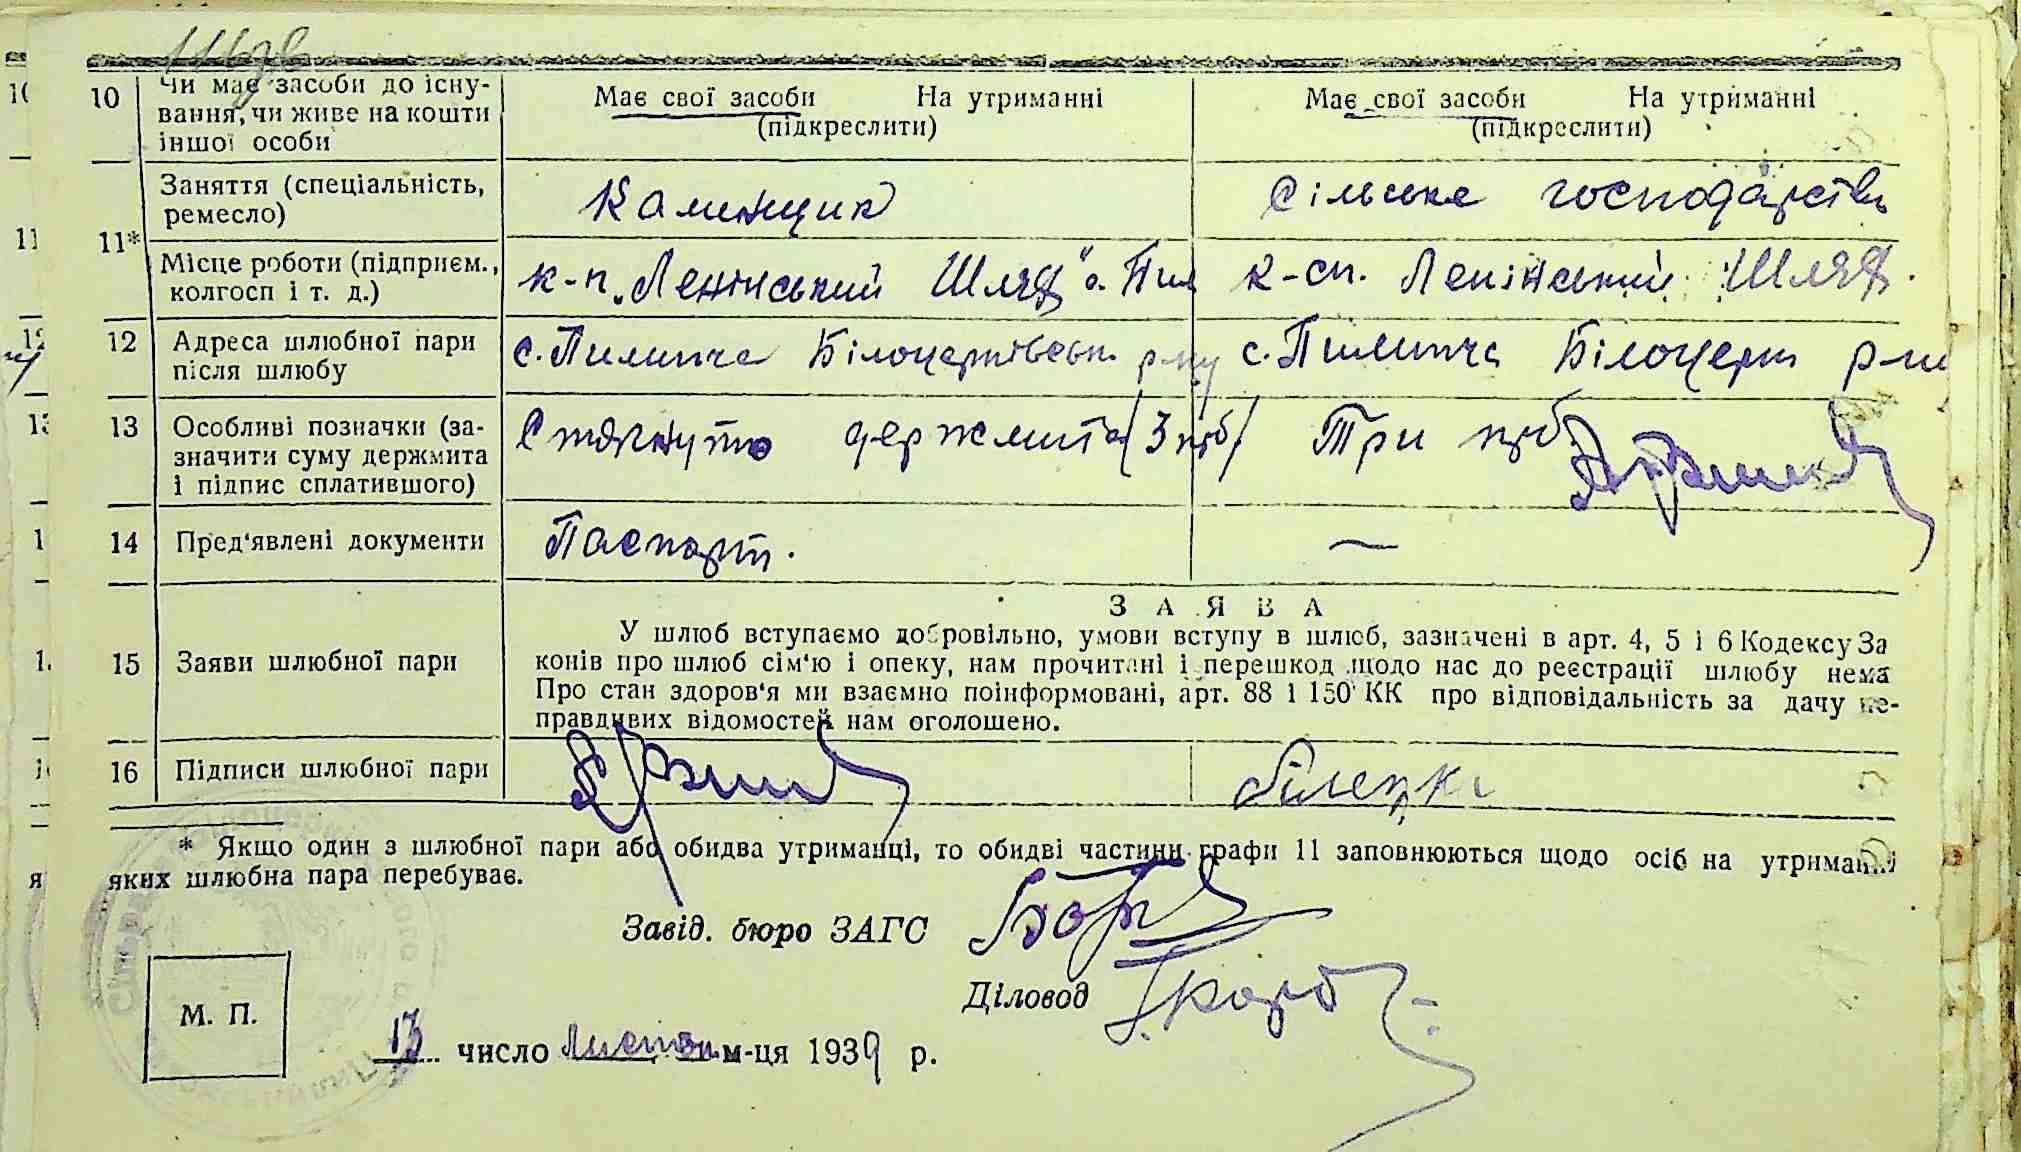 10 Чи має засоби до існу-
вання, чи живе на кошти
іншої особи
Має свої засоби На утриманні
(підкреслити)
Має свої засоби На утриманні
(підкреслити)
11* Заняття (спеціальність,
ремесло)
Каменщик
Сільське господарство
Місце роботи (підприєм.,
колгосп і т. д.)
к-п. „Ленінський Шлях" с. Пил
к-сп. Ленінський Шлях.
12 Адреса шлюбної пари
після шлюбу
с. Пилипча Білоцерківськ. р-ну
с. Пилипча Білоцерк р-ну
13 Особливі позначки (за-
значити суму держмита
і підпис сплатившого)
Стягнуто держмита (3 крб)
Три крб.
14 Пред'явлені документи
Паспорт.
—
15 Заяви шлюбної пари
ЗАЯВА
У шлюб вступаємо добровільно, умови вступу в шлюб, зазначені в арт. 4, 5 і 6 Кодексу За
конів про шлюб сім'ю і опеку, нам прочитані і перешкод щодо нас до реєстрації шлюбу нема
Про стан здоров'я ми взаємно поінформовані, арт. 88 і 150 КК про відповідальність за дачу не-
правдивих відомостей нам оголошено.
16 Підписи шлюбної пари
Білецка
* Якщо один з шлюбної пари або обидва утриманці, то обидві частини графи 11 заповнюються щодо осіб на утриманні
яких шлюбна пара перебуває.
Завід. бюро ЗАГС
Діловод
М. П.
13 число Листопа м-ця 1939 р.